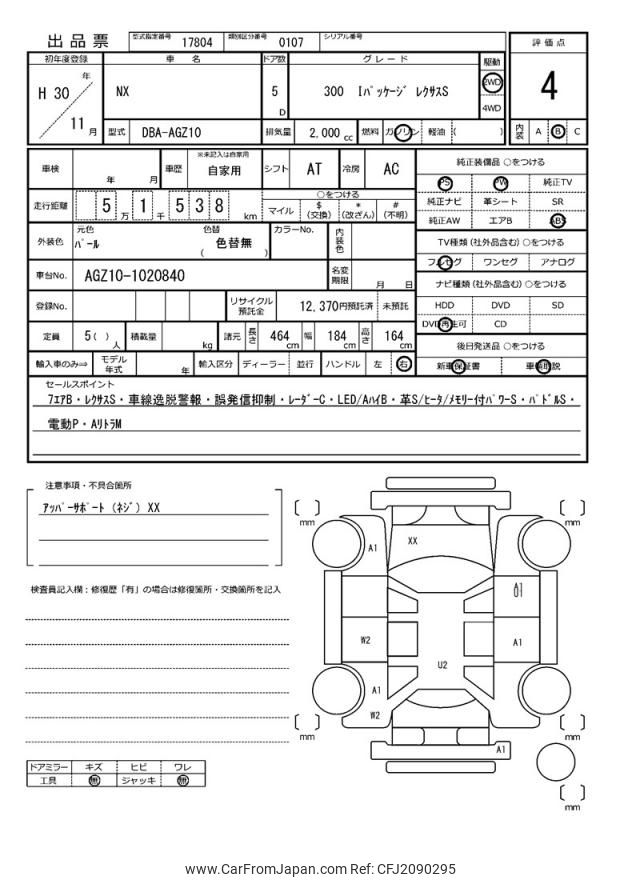 出品票 型式指定番号 17804 類別区分番号 0107 シリアル番号
評価点
4
初年度登録 車名 ドア数 グレード 駆動
H 30 年 11 月
NX 5 D 300 Iパッケージ レクサスS 2WD
4WD
型式 DBA-AGZ10 排気量 2,000 cc 燃料 ガソリン 軽油 ( )
内装 A B C
車検 年 月 車歴 ※未記入は自家用 自家用 シフト AT 冷房 AC
走行距離 5 万 1 千 5 3 8 km
○をつける
マイル $(交換) *(改ざん) #(不明)
外装色 元色 パール 色替 色替無 ( ) カラーNo. 内装色
車台No. AGZ10-1020840 名変期限 月 日
登録No. リサイクル預託金 12,370円預託済 未預託
定員 5( )人 積載量 kg 諸元 長さ 464 cm 幅 184 cm 高さ 164 cm
輸入車のみ⇒ モデル年式 年 輸入区分 ディーラー 並行 ハンドル 左 右
純正装備品 ○をつける
PS PW 純正TV
純正ナビ 革シート SR
純正AW エアB ABS
TV種類(社外品含む)○をつける
フルセグ ワンセグ アナログ
ナビ種類(社外品含む)○をつける
HDD DVD SD
DVD再生可 CD
後日発送品 ○をつける
新車保証書 車輌取説
セールスポイント
7エアB・レクサスS・車線逸脱警報・誤発信抑制・レーダーC・LED/AハイB・革S/ヒータ/メモリー付パワーS・パドルS・
電動P・AリトラM
注意事項・不具合箇所
アッパーサポート(ネジ)XX
検査員記入欄:修復歴「有」の場合は修復箇所・交換箇所を記入
ドアミラー キズ ヒビ ワレ
工具 無 ジャッキ 無
[ ] mm
[ ] mm
A1
XX
A1
01
W2
A1
U2
A1
W2
A1
[ ] mm
[ ] mm
[ ] mm
www.CarFromJapan.com Ref: CFJ2090295